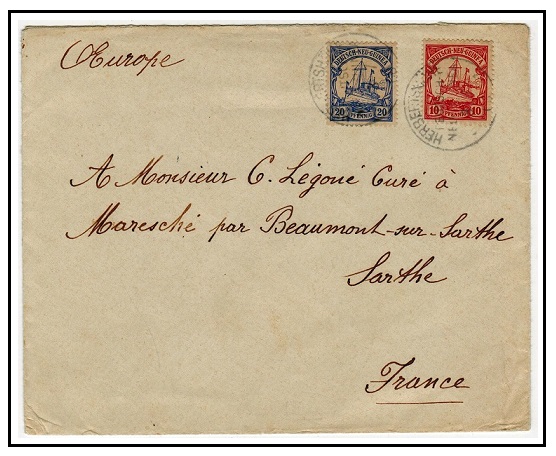 Europe
DEUTSCH-NEU-GUINEA
20 PFENNIG 20
DEUTSCH-NEU-GUINEA
10 PFENNIG 10
A Monsieur C. Légoué Curé à
Maresché par Beaumont-sur-Sarthe
Sarthe
France